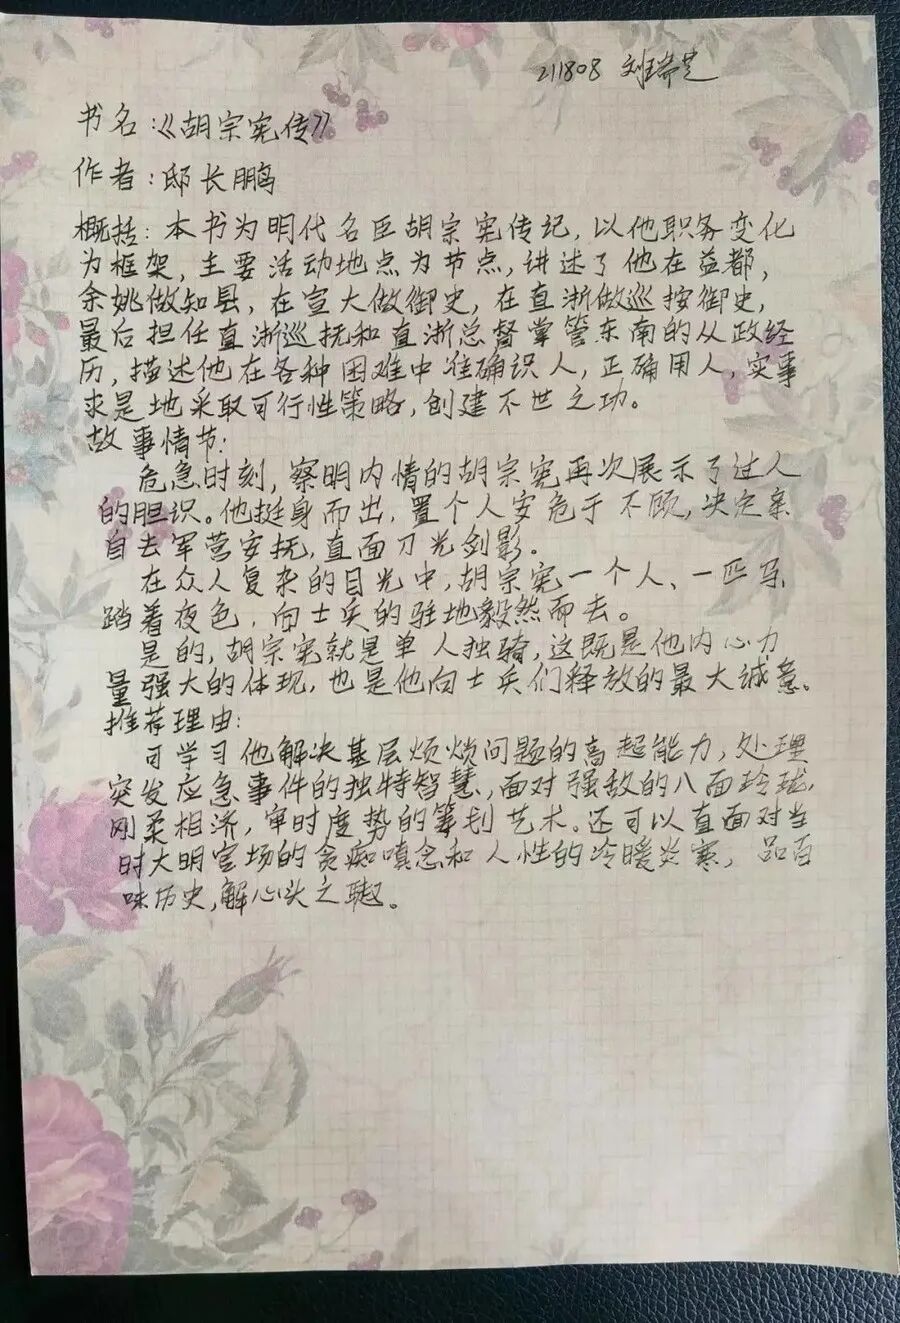 211808 刘瑞芝
书名:《胡宗宪传》
作者:邸长鹏
概括:本书为明代名臣胡宗宪传记,以他职务变化
为框架,主要活动地点为节点,讲述了他在益都,
余姚做知县,在宣大做御史,在直浙做巡按御史,
最后担任直浙巡抚和直浙总督掌管东南的从政经
历,描述他在各种困难中准确识人,正确用人,实事
求是地采取可行性策略,创建不世之功。
故事情节:
危急时刻,察明内情的胡宗宪再次展示了过人
的胆识。他挺身而出,置个人安危于不顾,决定亲
自去军营安抚,直面刀光剑影。
在众人复杂的目光中,胡宗宪一个人、一匹马,
踏着夜色,向士兵的驻地毅然而去。
是的,胡宗宪就是单人独骑,这既是他内心力
量强大的体现,也是他向士兵们释放的最大诚意。
推荐理由:
可学习他解决基层烦琐问题的高超能力,处理
突发应急事件的独特智慧,面对强敌的八面玲珑,
刚柔相济,审时度势的筹划艺术。还可以直面对当
时大明官场的贪痴嗔念和人性的冷暖炎寒,品百
味历史,解心头之